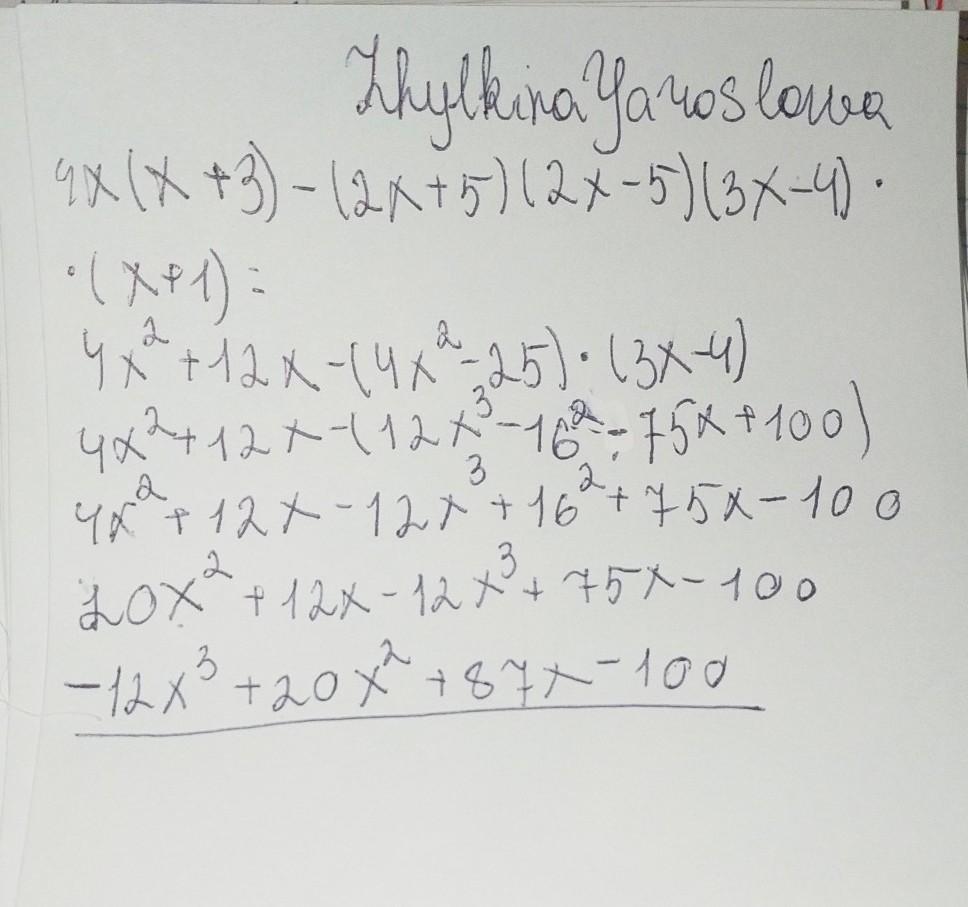 Zhylkina Yaroslowa
4x(x+3)-(2x+5)(2x-5)(3x-4)·
·(x+1)=
4x²+12x-(4x²-25)·(3x-4)
4x²+12x-(12x³-16²-75x+100)
4x²+12x-12x³+16²+75x-100
20x²+12x-12x³+75x-100
-12x³+20x²+87x-100